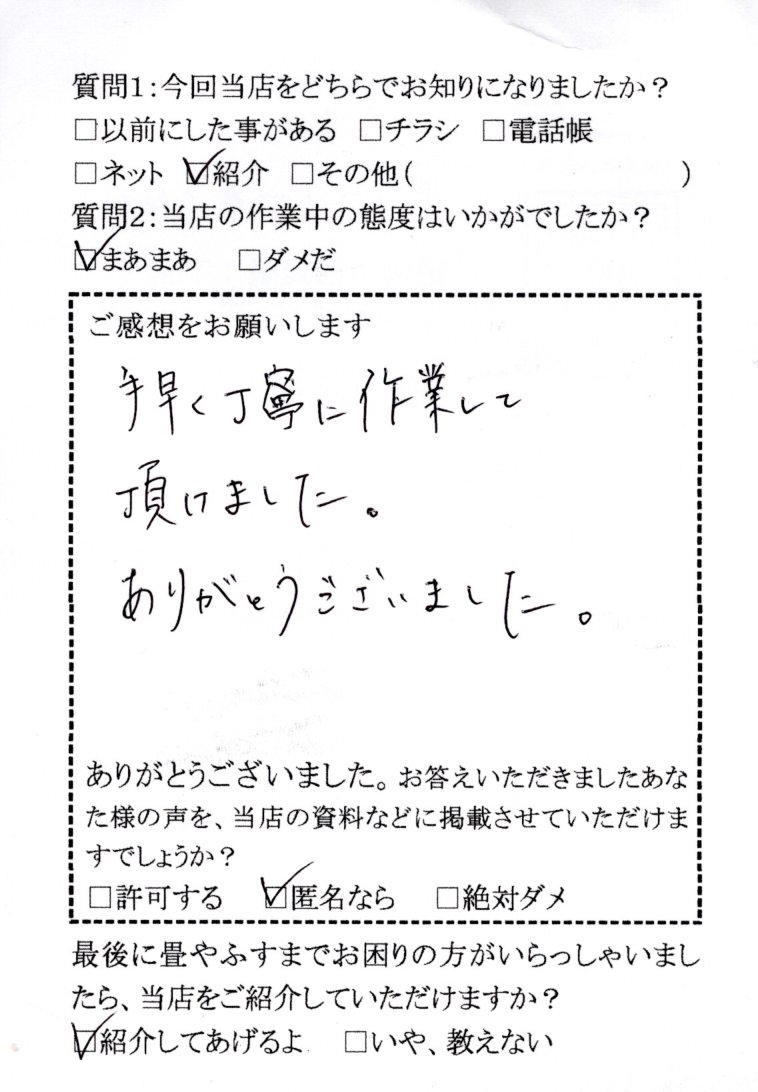 質問1:今回当店をどちらでお知りになりましたか?
□以前にした事がある □チラシ □電話帳
□ネット ☑紹介 □その他( )
質問2:当店の作業中の態度はいかがでしたか?
☑まあまあ □ダメだ
ご感想をお願いします
手早く丁寧に作業して
頂けました。
ありがとうございました。
ありがとうございました。お答えいただきましたあな
た様の声を、当店の資料などに掲載させていただけま
すでしょうか?
□許可する ☑匿名なら □絶対ダメ
最後に畳やふすまでお困りの方がいらっしゃいまし
たら、当店をご紹介していただけますか?
☑紹介してあげるよ □いや、教えない